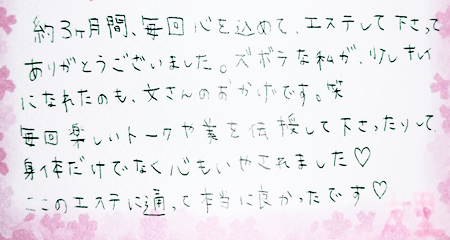 約3ヶ月間、毎回心を込めて、エステして下さって
ありがとうございました。ズボラな私が、少しキレイ
になれたのも、文さんのおかげです。笑
毎回楽しいトークや美を伝授して下さったりして
身体だけでなく心もいやされました♡
ここのエステに通って本当に良かったです♡